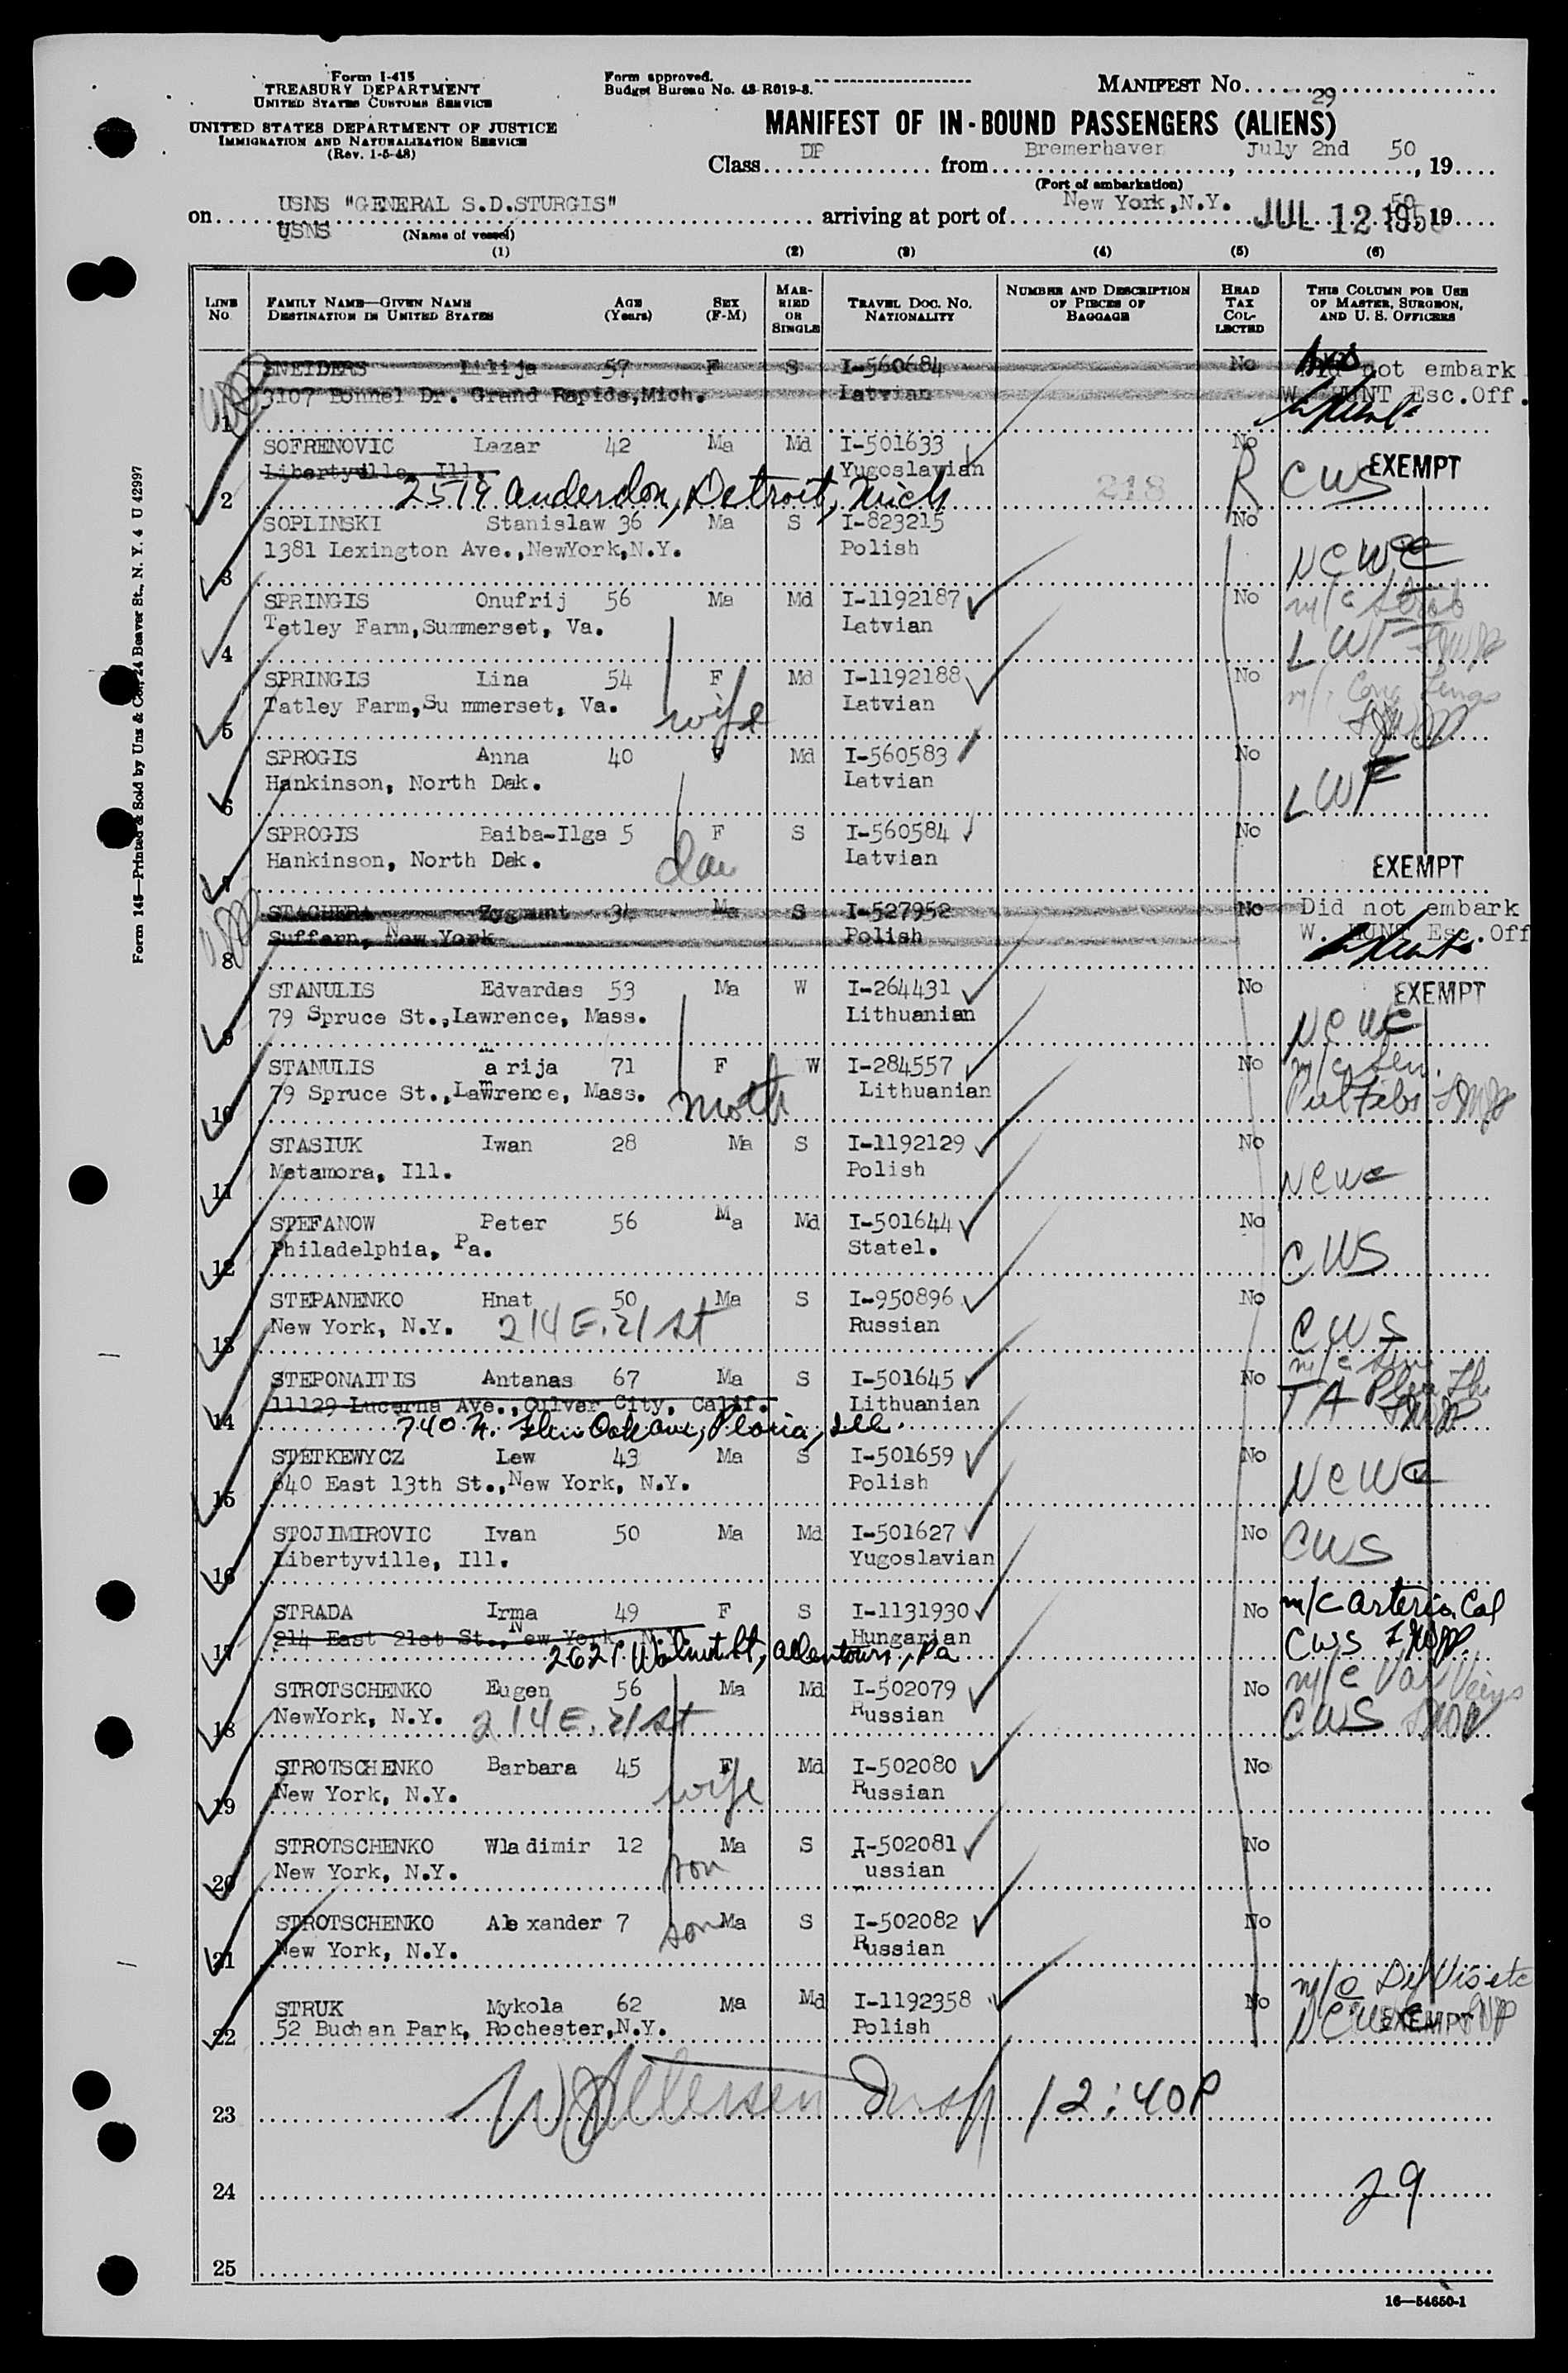 Form I-415
TREASURY DEPARTMENT
UNITED STATES CUSTOMS SERVICE
UNITED STATES DEPARTMENT OF JUSTICE
IMMIGRATION AND NATURALIZATION SERVICE
(Rev. 1-5-48)
Form approved.
Budget Bureau No. 43-R019-3.
MANIFEST NO. 29
MANIFEST OF IN-BOUND PASSENGERS (ALIENS)
Class DP from Bremerhaven, July 2nd 50, 19
(Port of embarkation)
on USNS "GENERAL S.D.STURGIS" arriving at port of New York,N.Y. JUL 12 1950 50, 19
USNS (Name of vessel)
(1) (2) (3) (4) (5) (6)
LINE NO. FAMILY NAME—GIVEN NAME DESTINATION IN UNITED STATES AGE (Years) SEX (F-M) MARRIED OR SINGLE TRAVEL DOC. NO. NATIONALITY NUMBER AND DESCRIPTION OF PIECES OF BAGGAGE HEAD TAX COLLECTED THIS COLUMN FOR USE OF MASTER, SURGEON, AND U. S. OFFICERS
SNEIDERS Lilija 57 F S I-560684 No Did not embark
1 3107 Bonnel Dr. Grand Rapids,Mich. Latvian W. HUNT Esc.Off.
SOFRENOVIC Lazar 42 Ma Md I-501633 No EXEMPT
Libertyville, Ill. Yugoslavian R CWS
2 2579 Anderdon, Detroit, Mich 218
SOPLINSKI Stanislaw 36 Ma S I-823215 No
3 1381 Lexington Ave.,NewYork,N.Y. Polish NCWC
SPRINGIS Onufrij 56 Ma Md I-1192187 No m/c
4 Tetley Farm,Summerset, Va. Latvian LWF
SPRINGIS Lina 54 F Md I-1192188 No
5 Tatley Farm,Su mmerset, Va. wife Latvian
SPROGIS Anna 40 F Md I-560583 No
6 Hankinson, North Dak. Latvian LWF
SPROGIS Baiba-Ilga 5 F S I-560584 No
7 Hankinson, North Dak. dau Latvian EXEMPT
STACHERA Zygmunt 34 Ma S I-527952 No Did not embark
8 Suffern, New York Polish W. HUNT Esc.Off
STANULIS Edvardas 53 Ma W I-264431 No EXEMPT
9 79 Spruce St.,Lawrence, Mass. Lithuanian NCWC
STANULIS Marija 71 F W I-284557 No m/c Sen.
10 79 Spruce St.,Lawrence, Mass. moth Lithuanian
STASIUK Iwan 28 Ma S I-1192129 No
11 Metamora, Ill. Polish NCWC
STEFANOW Peter 56 Ma Md I-501644 No
12 Philadelphia, Pa. Statel. CWS
STEPANENKO Hnat 50 Ma S I-950896 No
13 New York, N.Y. 214 E. 21 St Russian CWS
STEPONAITIS Antanas 67 Ma S I-501645 No m/c Sen
11129 Lucerna Ave.,Culver City, Calif. Lithuanian
14 740 N. Glen Oak Ave, Peoria, Ill.
STETKEWYCZ Lew 43 Ma S I-501659 No
15 640 East 13th St.,New York, N.Y. Polish NCWC
STOJIMIROVIC Ivan 50 Ma Md I-501627 No CWS
16 Libertyville, Ill. Yugoslavian
STRADA Irma 49 F S I-1131930 No m/c Arterio Cal
214 East 21st St.,New York, N.Y. Hungarian CWS
17 2621 Walnut St, Allentown, Pa
STROTSCHENKO Eugen 56 Ma Md I-502079 No m/c Var Veins
18 NewYork, N.Y. 214 E. 21 St Russian CWS
STROTSCHENKO Barbara 45 F Md I-502080 No
19 New York, N.Y. wife Russian
STROTSCHENKO Wladimir 12 Ma S I-502081 No
20 New York, N.Y. son Russian
STROTSCHENKO Alexander 7 Ma S I-502082 No
21 New York, N.Y. son Russian
STRUK Mykola 62 Ma Md I-1192358 No m/c Def Vis etc
22 52 Buchan Park, Rochester,N.Y. Polish NCWC EXEMPT
23 Insp 12:40P
24 29
25
16—54650-1
Form 145—Printed & Sold by Unz & Co., 24 Beaver St., N. Y. 4 U 42997